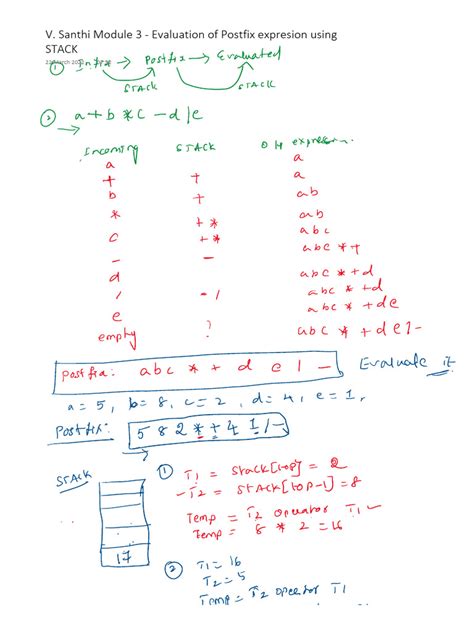 V. Santhi Module 3 - Evaluation of Postfix expresion using
STACK
① Infix → Postfix → Evaluated
STACK STACK
② a+b*c-d/e
Incoming STACK O/P expression
a a
+ + a
b + ab
* +* ab
c +* abc
- - abc*+
d abc*+d
/ -/ abc*+d
e abc*+de
empty ? abc*+de/-
Postfix: abc*+de/- Evaluate it
a=5, b=8, c=2, d=4, e=1,
Postfix: 582*+41/-
STACK
17
① T1 = Stack[top] = 2
T2 = STACK[top-1] = 8
Temp = T2 operator T1
Temp = 8 * 2 = 16
② T1 = 16
T2 = 5
Temp = T2 operator T1